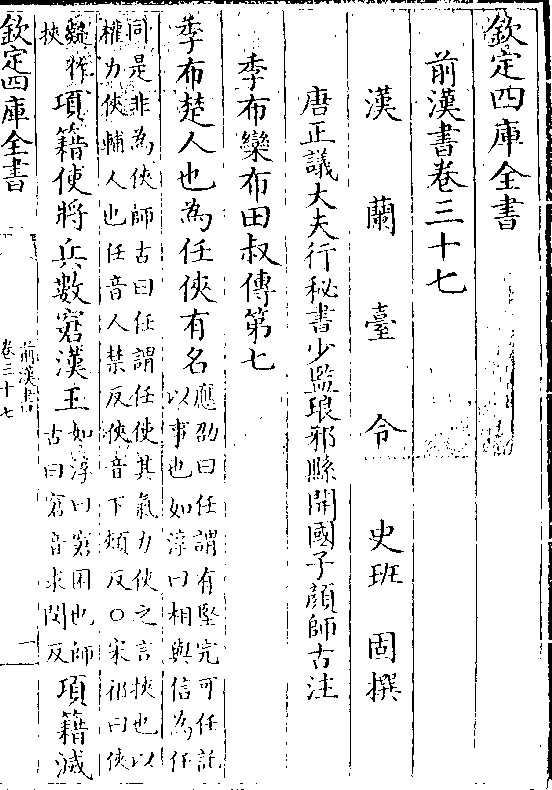 欽定四庫全書
前漢書卷三十七
漢蘭臺令史班固撰
唐正議大夫行秘書少監琅邪縣開國子顔師古注
季布欒布田叔傳第七
季布楚人也為任俠有名應劭曰任謂有堅完可任託以事也如淳曰相與信為任
同是非為俠師古曰任謂任使其氣力俠之言挾也以權力俠輔人也任音人禁反俠音下頰反○宋祁曰俠
疑作挾項籍使將兵數窘漢王如淳曰窘困也師古曰窘音求閔反項籍滅
欽定四庫全書
前漢書
卷三十七
一